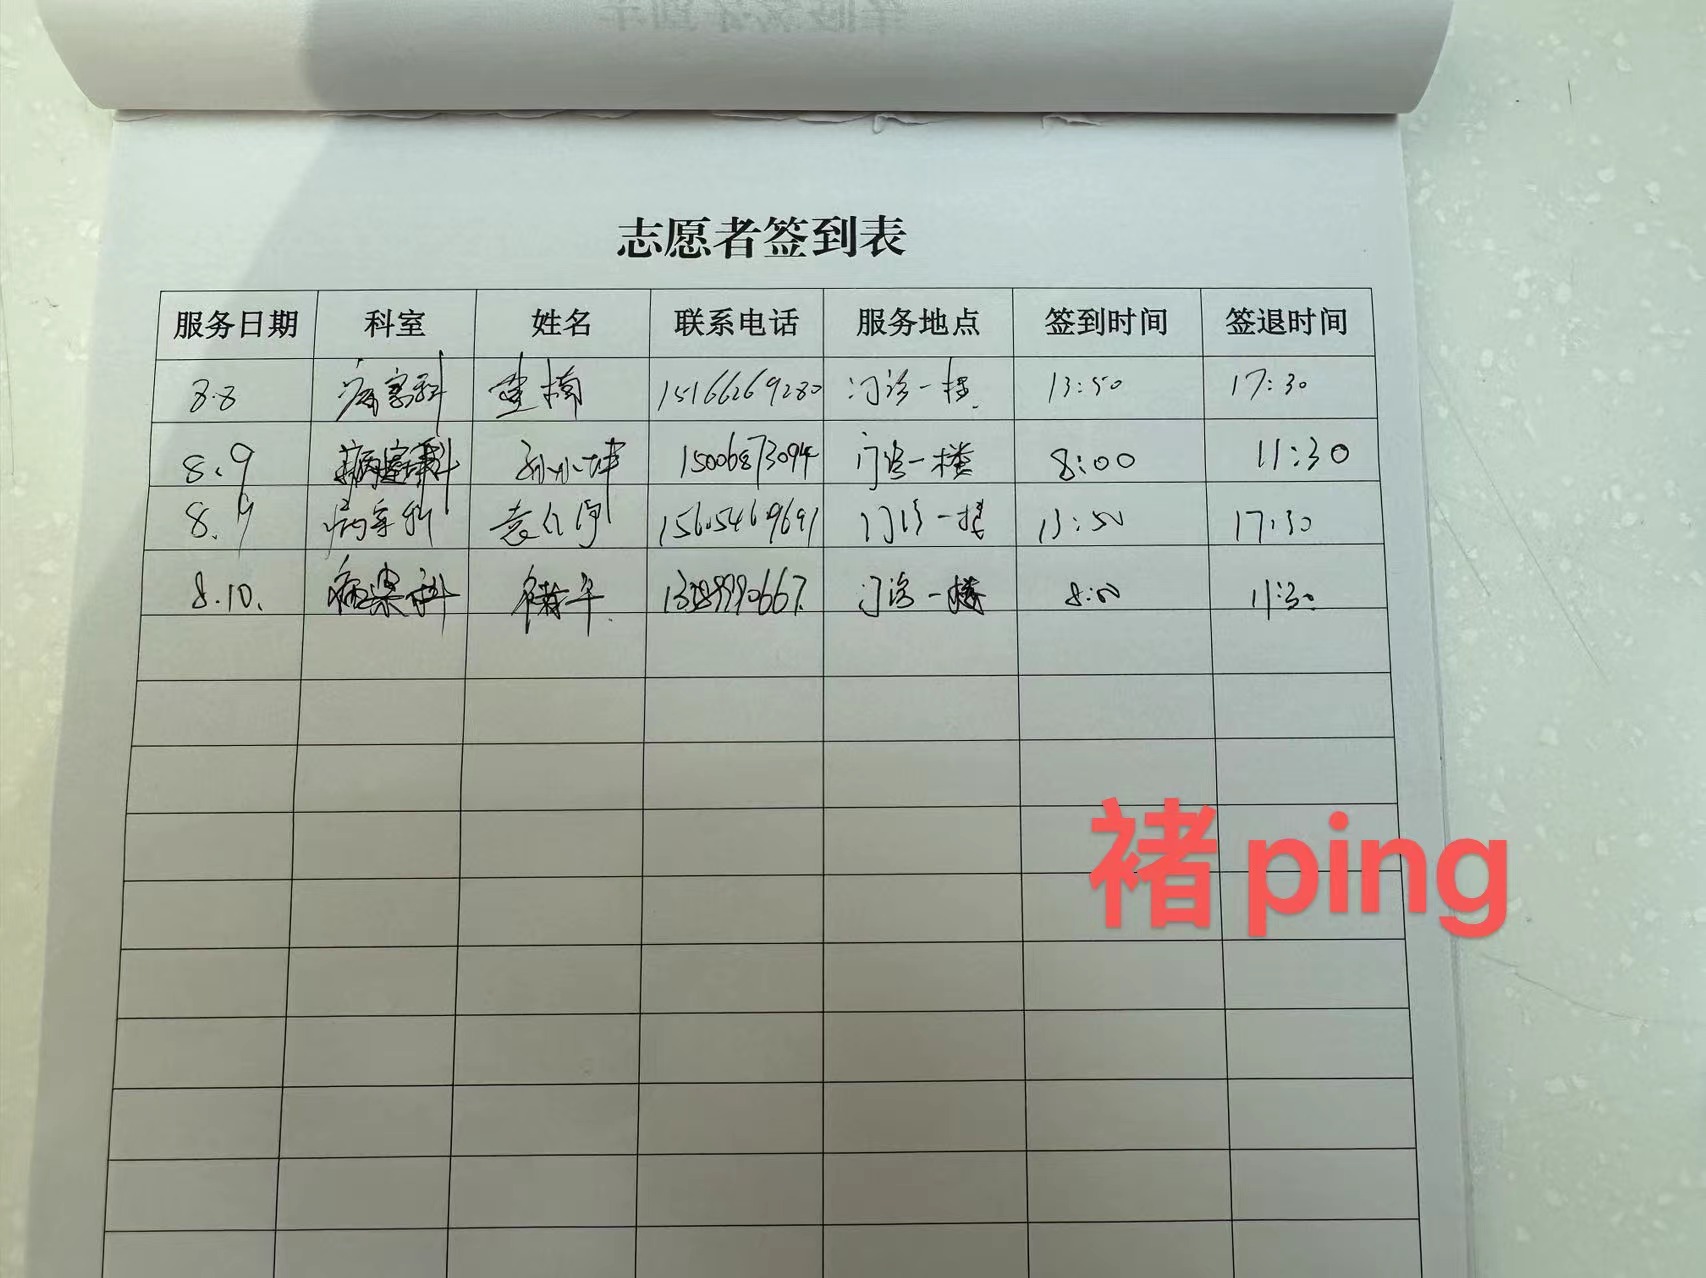 志愿者签到表
服务日期 科室 姓名 联系电话 服务地点 签到时间 签退时间
8.8 病案科 楠 15166269280 门诊一楼 13:50 17:30
8.9 病案科 15006873094 门诊一楼 8:00 11:30
8.9 病案科 15605469691 门诊一楼 13:50 17:30
8.10. 病案科 门诊一楼 8:00 11:30
褚ping